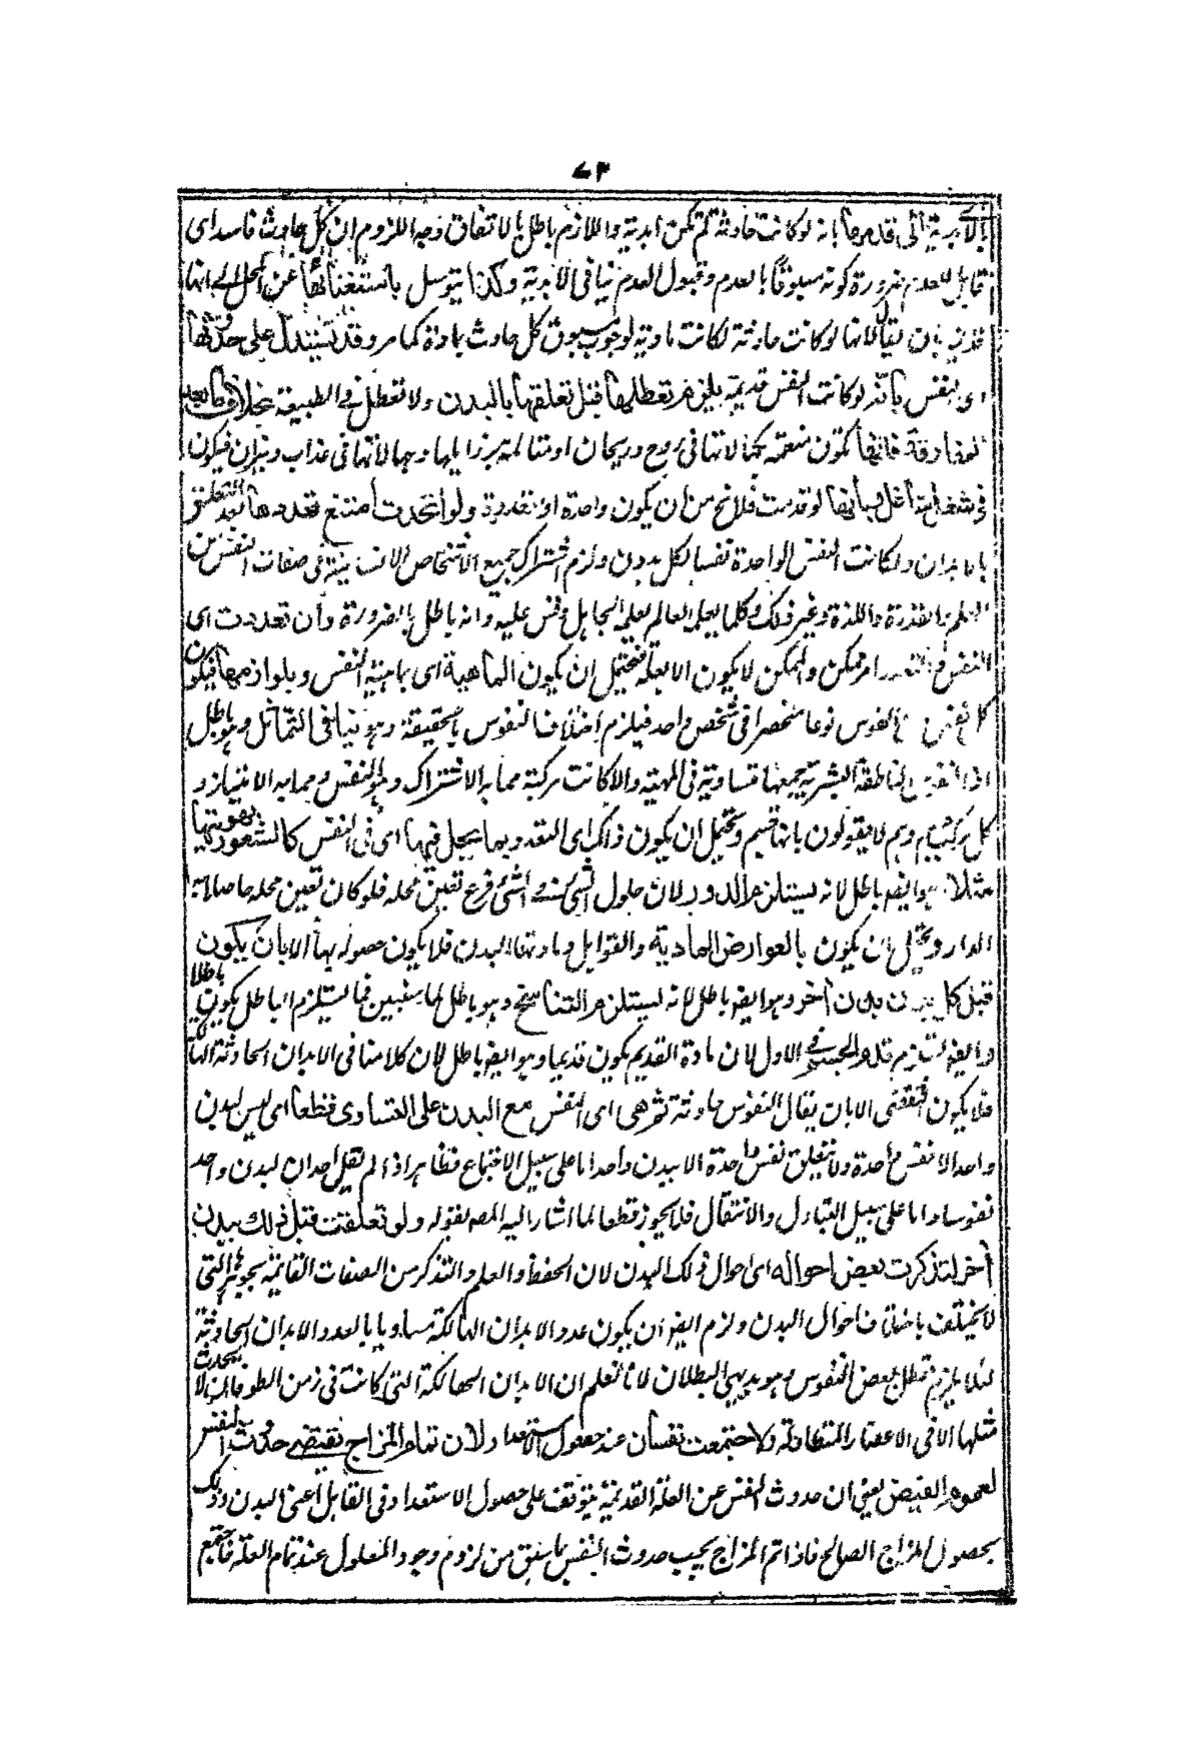 ٧٣
بالابدية الى قدمها بانه لو كانت حادثة لم تكن ابدية واللازم باطل بالاتفاق وجه اللزوم ان كل حادث فاسد اى
قابل للعدم ضرورة كونه مسبوقا بالعدم وقبول العدم ينافى الابدية وكذا يتوسل باستغنائها عن المحل الى انها
قديمة بان يقال لانها لو كانت حادثة لكانت مادية لوجوب سبوق كل حادث بمادة كما مر وقد يستدل على حدوثها
اى النفس بانه لو كانت النفس قديمة يلزم تعطلها قبل تعلقها بالبدن ولا تعطل فى الطبيعة بخلاف ما بعد
المفارقة فانها تكون منعمة بكمالاتها فى روح وريحان او متالمة برذايلها وجهالاتها فى عذاب ونيران فيكون
فى شغل بانها لو قدمت فلا يخ من ان يكون واحدة او متعددة ولو اتحدت امتنع تعددها بعد التعلق
بالابدان ولكانت النفس الواحدة نفسا لكل بدن ولزم اشتراك جميع الاشخاص الانسانية فى صفات النفس من
العلم والقدرة واللذة وغير ذلك وكلما يعلمه العالم يعلمه الجاهل وقس عليه وانه باطل بالضرورة وان تعددت اى
النفس امر ممكن والممكن لا يكون الا بعلة فيحتمل ان يكون الماهية اى بماهية النفس وبلوازمها فيكون
كل نفس من النفوس نوعا منحصرا فى شخص واحد فيلزم اختلاف النفوس بالحقيقة وهو ينافى التماثل وهو باطل
اذ النفوس الناطقة البشرية جميعها متساوية فى المهية والا كانت مركبة مما به الاشتراك وهو النفس ومما به الامتياز و
كل مركب جسم وهم لا يقولون بانها جسم ويحتمل ان يكون ذاك اى التعدد بما يحل فيها اى فى النفس كالشعور بهويتها
مثلا وهو ايضا باطل لانه يستلزم الدور لان حلول الشئ فى الشئ فرع تعين محله فلو كان تعين محله حاصلا به
لدار ويحتمل ان يكون بالعوارض المادية والقوابل ومادتها البدن فلا يكون حصوله بها الا بان يكون
قبل كل بدن بدن آخر وهو ايضا باطل لانه يستلزم التناسخ وهو باطل لما سنبين فما يستلزم الباطل يكون باطلا
وايضا يستلزم قدم الجسم فى الاول لان مادة القديم يكون قديما وهو ايضا باطل لان كلامنا فى الابدان الحادثة
فلا يكون التفصى الا بان يقال النفوس حادثة ثم هى اى النفس مع البدن على التساوى قطعا اى ليس لبدن
واحد الا نفس واحدة ولا تتعلق نفس واحدة الا ببدن واحد اما على سبيل الاجتماع فظاهر اذ لم يقل احد ان لبدن واحد
نفوسا واما على سبيل التبادل والانتقال فلا يجوز قطعا لما اشار اليه المصـ بقوله ولو تعلقت قبل ذلك ببدن
آخر لتذكرت بعض احواله اى احوال ذلك البدن لان الحفظ والعلم والتذكر من الصفات القائمة بجوهرها التى
لا يختلف باختلاف احوال البدن ولزم ايضا ان يكون عدد الابدان الهالكة مساويا بالعدد الابدان الحادثة
لئلا يلزم تعطل بعض النفوس وهو بديهى البطلان لانا نعلم ان الابدان الهالكة التى كانت فى زمن الطوفان لا يحدث
مثلها الا فى الاعصار المتطاولة ولاجتمعت نفسان عند حصول الاستعداد ولان تمام المزاج يقتضى حدوث النفس
لعموم الفيض يعنى ان حدوث النفس عن العلة القديمة يتوقف على حصول الاستعداد فى القابل اعنى البدن وذلك
بحصول المزاج الصالح فاذا تم المزاج يجب حدوث النفس لما سبق من لزوم وجود المعلول عند تمام العلة فاجتمع